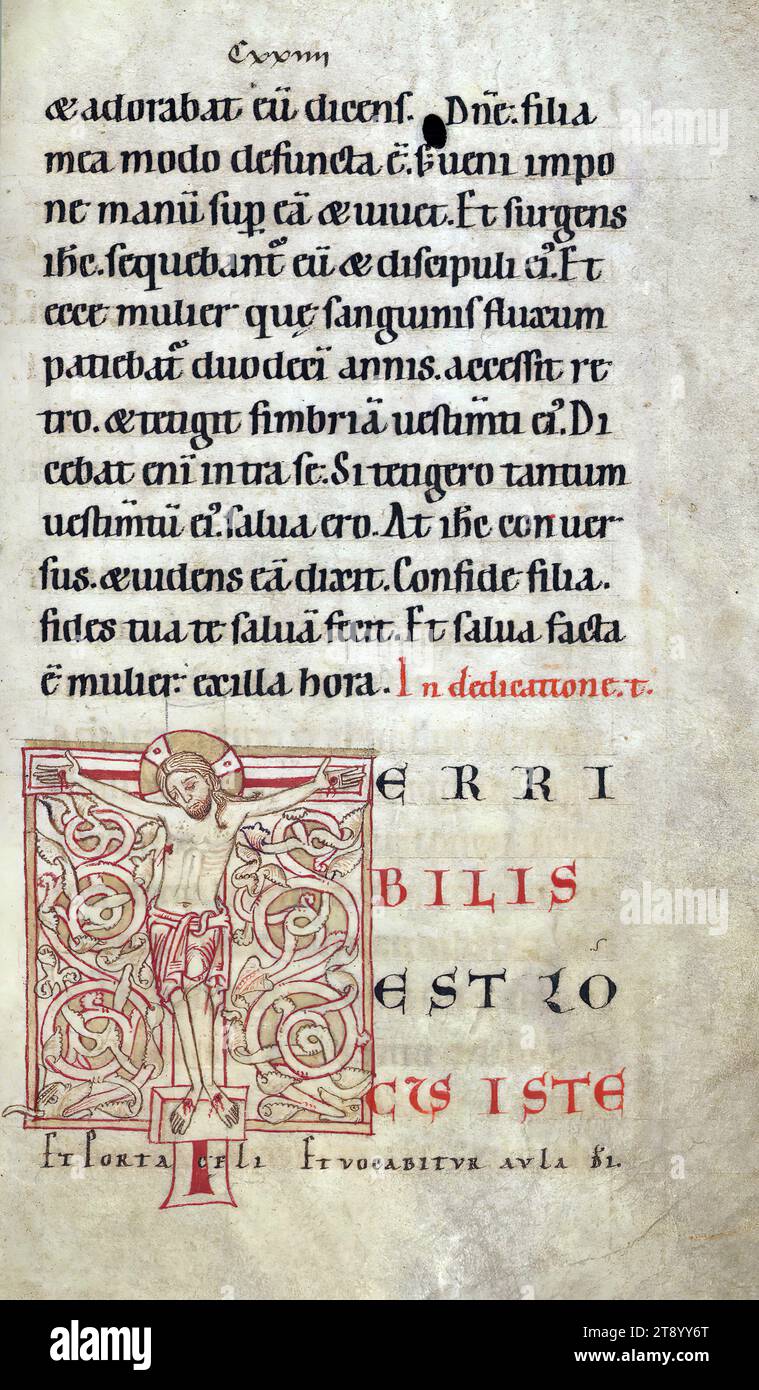 Cxxiiii
& adorabat eū dicens. Dñe. filia
mea modo defuncta ē. s; ueni impo
ne manū sup eā & uiuet. Et surgens
ihc. sequebant᷑ eū & discipuli ei᾽. Et
ecce mulier quę sanguinis fluxum
patiebat᷑ duodecī annis. accessit re
tro. & tetigit fimbriā uestim̄ti ei᾽. Di
cebat enī intra se. Si tetigero tantum
uestim̄tū ei᾽. salua ero. At ihc conuer
sus. & uidens eā dixit. Confide filia.
fides tua te saluā fecit. Et salua facta
ē mulier. ex illa hora. In dedicatione. t.
T ERRI
BILIS
EST LO
CUS ISTE
Et PORTA CELI Et VOCABITVR AVLA DI.
alamy
alamy
alamy
alamy
Image ID: 2T8YY6T
www.alamy.com